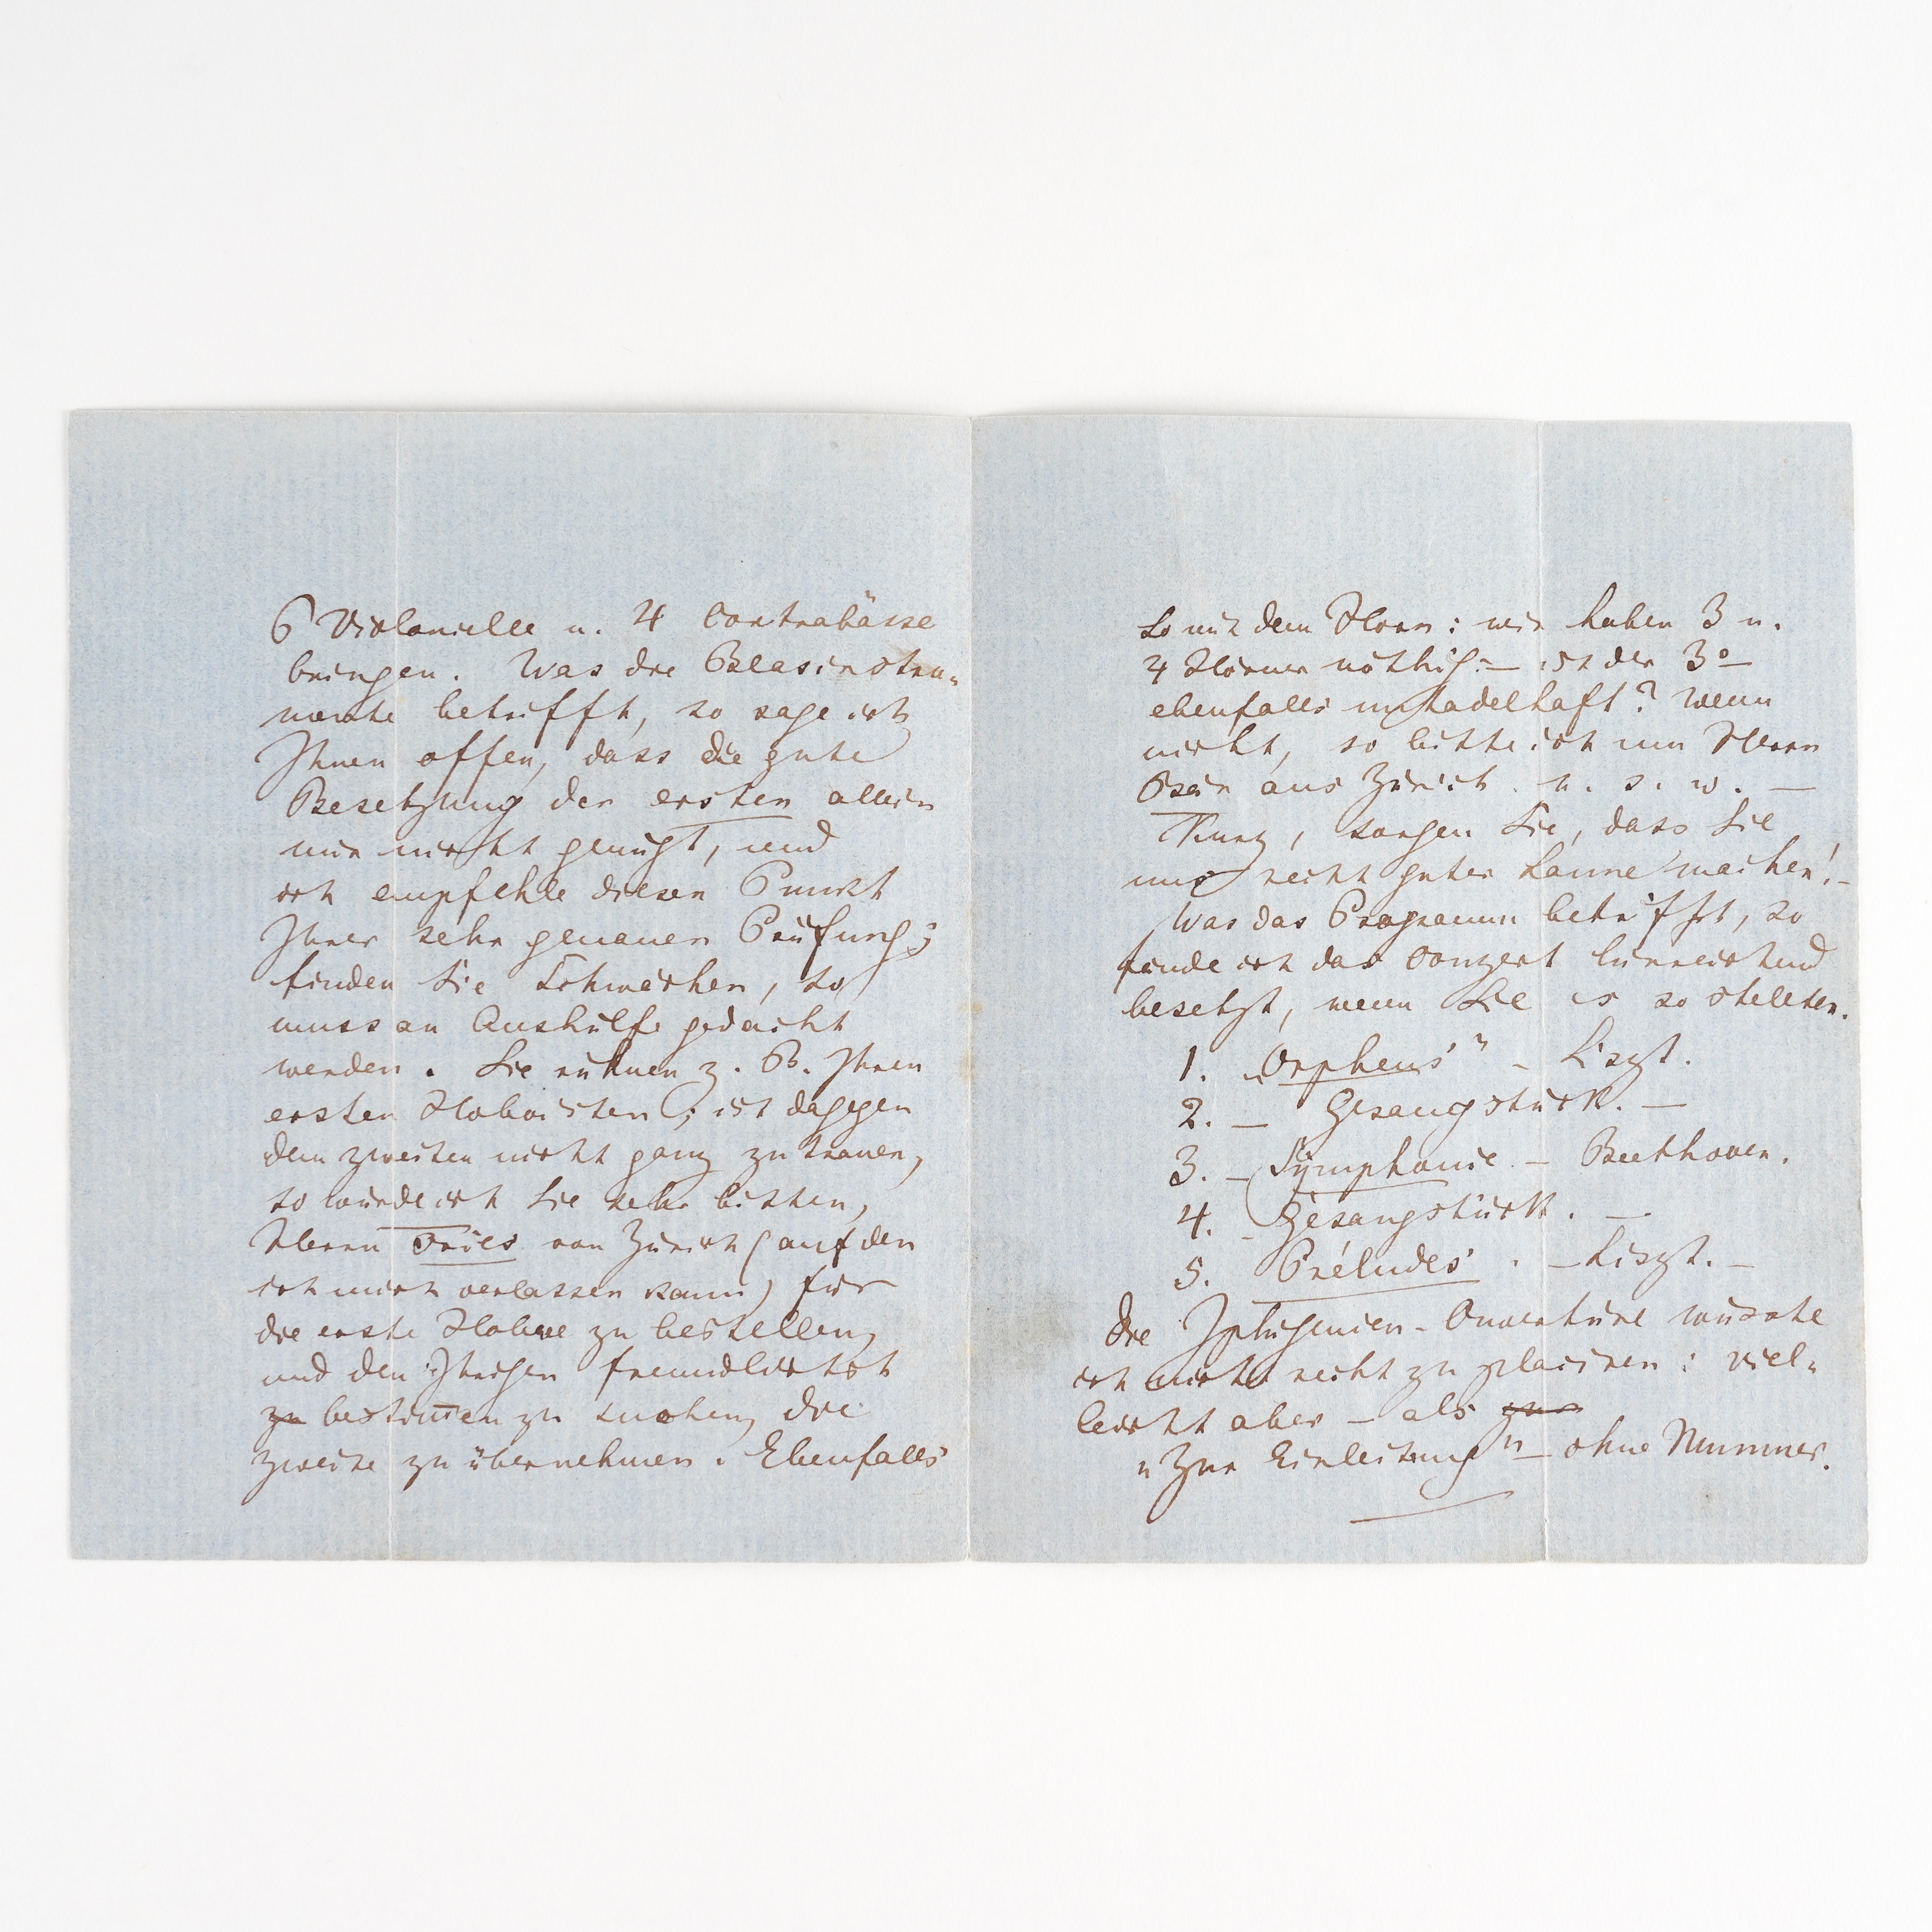 6 Violoncelle u. 4 Contrabässe
bringen. Was die Blasinstru-
mente betrifft, so sage ich
Ihnen offen, dass die gute
Besetzung der ersten allein
mir nicht genügt, und
ich empfehle diesen Punkt
Ihrer sehr genauen Prüfung;
finden Sie Schwächen, so
muss an Aushülfe gedacht
werden. Sie rühmen z. B. Ihren
ersten Hoboisten; ist dagegen
dem zweiten nicht ganz zu trauen,
so würde ich Sie sehr bitten,
Herrn Fries von Zürich (auf den
ich mich verlassen kann) für
die erste Hoboe zu bestellen,
und den Ihrigen freundlichst
zu bestimmen zu suchen, die
zweite zu übernehmen. Ebenfalls
So mit dem Horn: wir haben 3 u.
4 Hörner nöthig: — ist der 3º
ebenfalls untadelhaft? Wenn
nicht, so bitte ich um Herrn
Bär aus Zürich. u. s. w. —
Kurz, sorgen Sie, dass Sie
uns recht guter Laune machen! —
Was das Programm betrifft, so
finde ich das Conzert hinreichend
besetzt, wenn Sie es so stellten.
1. „Orpheus" – Liszt.
2. — Gesangstück. —
3. – Symphonie – Beethoven.
4. – Gesangstück. —
5. Préludes. – Liszt. –
Die Iphigenien-Ouvertüre wüsste
ich nicht recht zu placiren: viel-
leicht aber – als zur
„Zur Einleitung" – ohne Nummer.